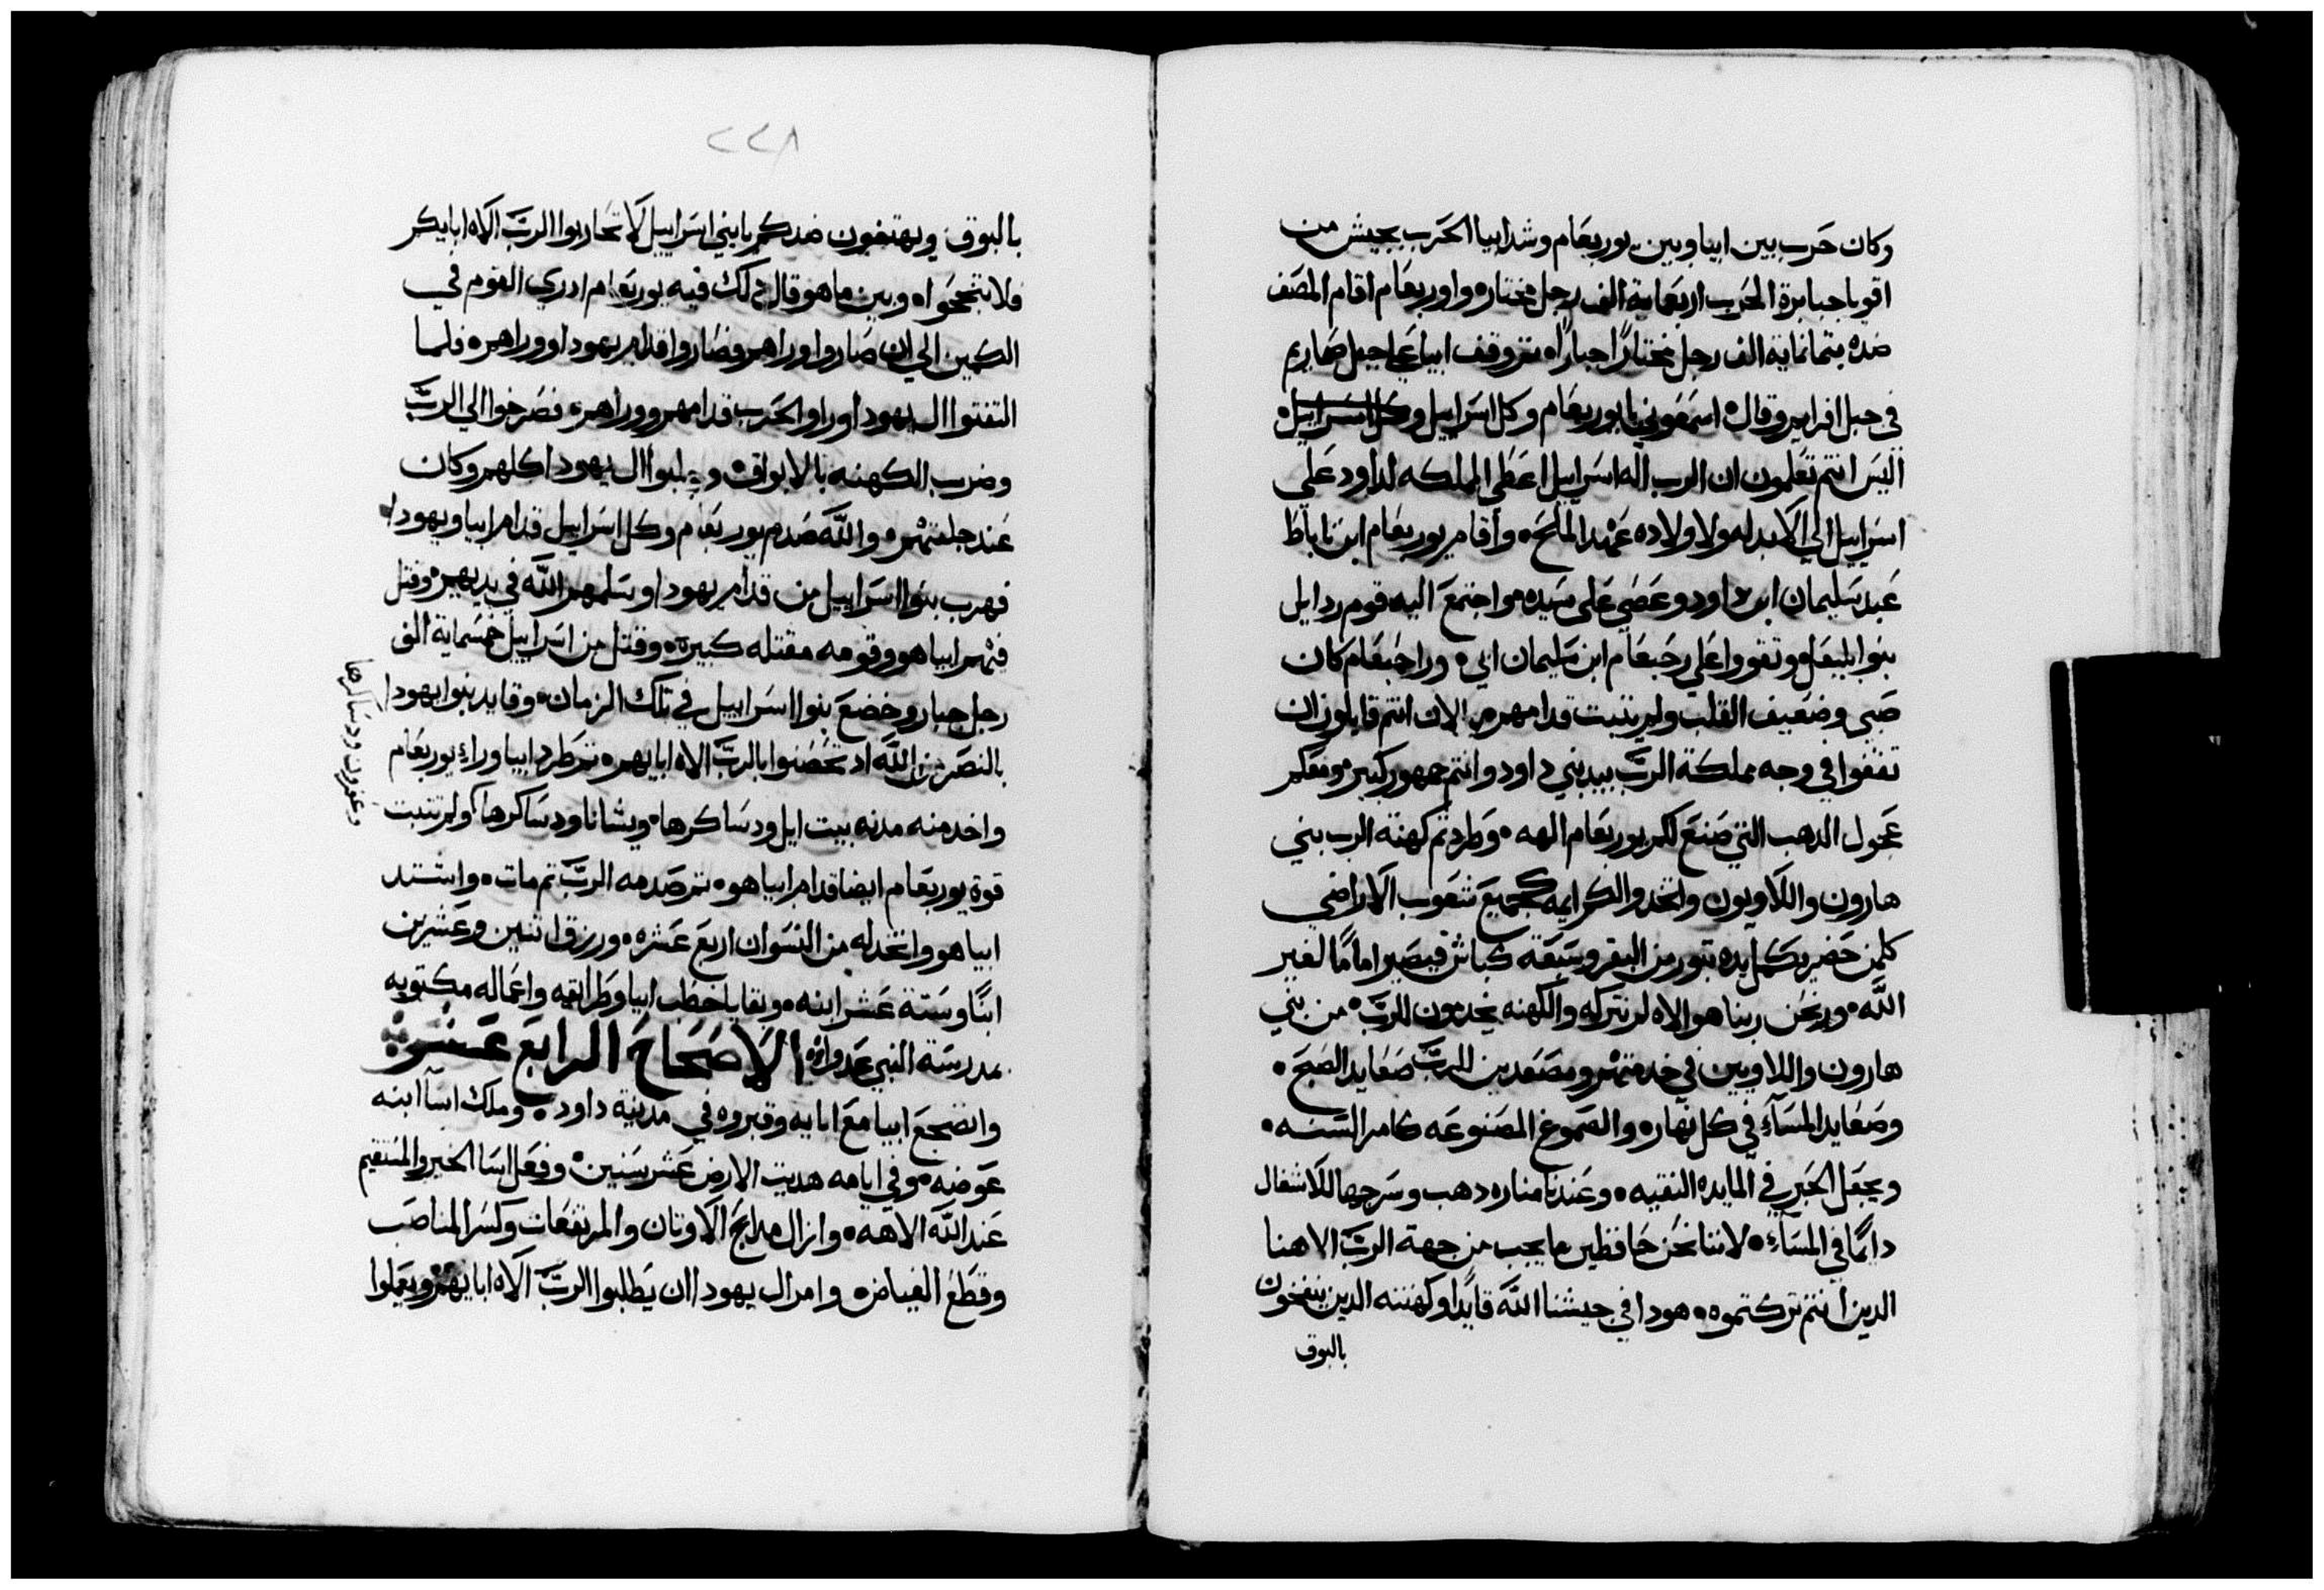 وكان حرب بين ابيا وبين يوربعام وشد ابيا الحرب بجيش من
اقويا جبابرة الحرب اربعماية الف رجل مختاره واوربعام اقام المصف
ضده بتمانماية الف رجل مختارًا جبارًا ثم وقف ابيا علي جبل صماريم
في جبل افرايم وقال اسمعوني يا يوربعام وكل اسراييل وكل اسراييل
اليس انتم تعلمون ان الرب اله اسراييل اعطي المملكه لداود علي
اسراييل الي الابد له ولاولاده عهد الملح واقام يوربعام ابن ناباط
عبد سليمان ابن داود وعصي علي سيده واجتمع اليه قوم ردايل
بنوا بليعال وتقووا علي رحبعام ابن سليمان ابي وراحبعام كان
صبي وضعيف القلب ولم يتبت قدامهم الان انتم قايلون ان
تقفوا في وجه مملكة الرب بيد بني داود وانتم جمهور كبير ومعكم
عجول الدهب التي صنع لكم يوربعام الهه وطردتم كهنة الرب بني
هارون واللاويون واتخدوا لكم ايمه كجميع شعوب الاراضي
كلمن حضر يكمل يده بتور من البقر وسبعة كباش فيصير امامًا لغير
الله ونحن ربنا هو الاه لم نتركه والكهنه يخدمون للرب من بني
هارون واللاويين في خدمتهم ومصعدين للرب صعايد الصبح
وصعايد المسآء في كل نهاره والصموغ المصنوعه كامر السنه
ويجعل الخبر في المايده النقيه وعندنا مناره دهب وسرجها للاشغال
دايمًا في المسآء لاننا نحن حافظين ما يجب من جهة الرب الاهنا
الدين انتم تركتموه هودا في جيشنا الله قايدًا وكهنته الدين ينفخون
بالبوق
٢٢٨
بالبوق ويهتفون ضدكم يا بني اسراييل لا تحاربوا الرب الاه ابايكم
فلا تنجحوا وبين ما هو قال دلك فيه يوربعام ادري القوم في
الكمين الي ان صاروا وراهم فصاروا قدام يهودا ووراهم فلما
التفتوا ال يهودا وراو الحرب قدامهم ووراهم فصرخوا الي الرب
وضرب الكهنه بالابواق وجلبوا ال يهودا كلهم وكان
عند جلبتهم والله صدم يوربعام وكل اسراييل قدام ابيا ويهودا
فهرب بنوا اسراييل من قدام يهودا وسلمهم الله في يديهم وقتل
فيهم ابيا هو وقومه مقتله كبيرة وقتل من اسراييل خمسماية الف
رجل جبار وخضع بنوا اسراييل في تلك الزمان وقايد بنوا يهودا
بالنصر من الله اد تحصنوا بالرب الاه ابايهم ثم طرد ابيا وراء يوربعام
واخد منه مدنه بيت ايل ودساكرها ويشانا ودساكرها ولم تتبت
وعفرون ودساكرها
قوة يوربعام ايضا قدام ابياهو ثم صدمه الرب تم مات واشتد
ابياهو واتخد له من النسوان اربع عشره ورزق اتنين وعشرين
ابنًا وستة عشر ابنه وبقايا خطب ابيا وطرايقه واعماله مكتوبه
بمدرسة النبي عدوا الاصحاح الرابع عشر
واضجع ابيا مع ابايه وقبروه في مدينة داود وملك اسآ ابنه
عوضه وفي ايامه هديت الارض عشر سنين وفعل اسا الخير والمستقيم
عند الله الاهه وازال مدابح الاوتان والمرتفعات وكسر المناصب
وقطع الغياض وامر ال يهودا ان يطلبوا الرب الاه ابايهم ويعملوا